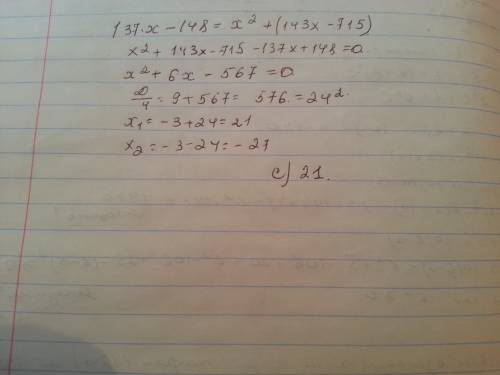 137·x - 148 = x² + (143x - 715)
x² + 143x - 715 - 137x + 148 = 0
x² + 6x - 567 = 0
D/4 = 9 + 567 = 576 = 24²
x₁ = -3 + 24 = 21
x₂ = -3 - 24 = -27
c) 21.